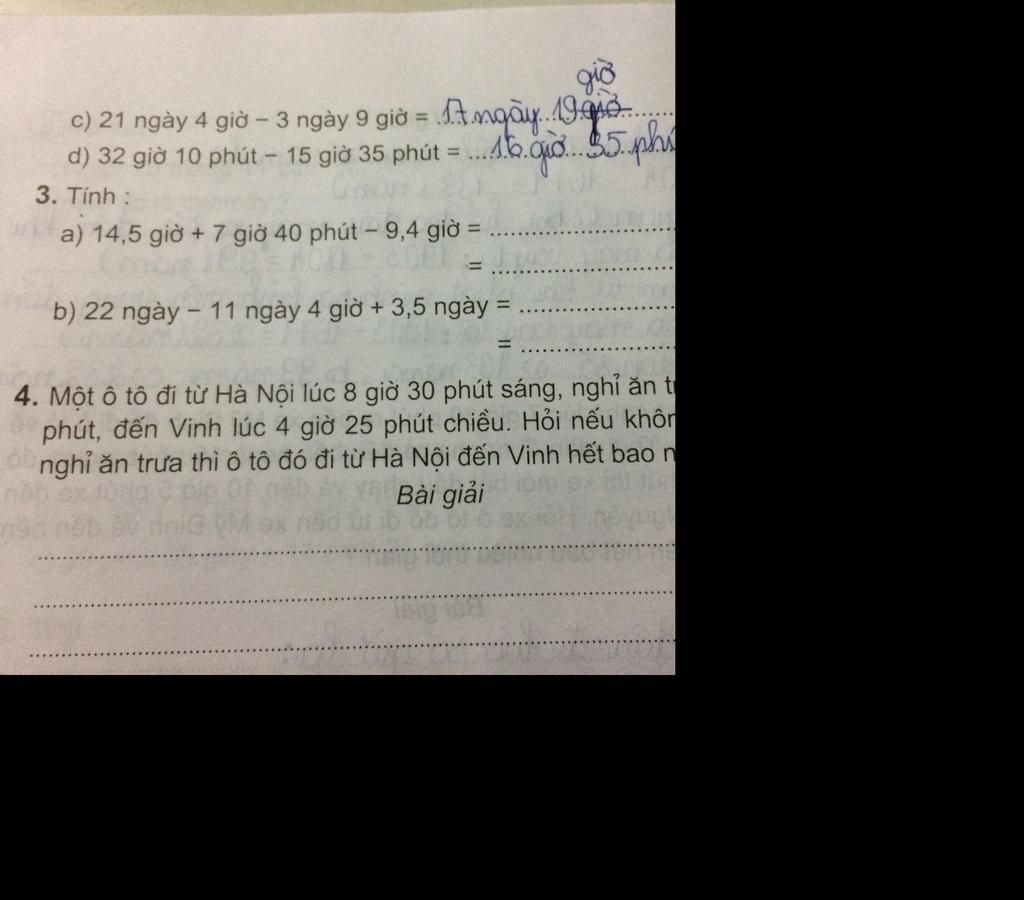 giờ
c) 21 ngày 4 giờ − 3 ngày 9 giờ = 17 ngày 19 giờ
d) 32 giờ 10 phút − 15 giờ 35 phút = 16 giờ 35 phú
3. Tính :
a) 14,5 giờ + 7 giờ 40 phút − 9,4 giờ = ........................
= ........................
b) 22 ngày − 11 ngày 4 giờ + 3,5 ngày = ........................
= ........................
4. Một ô tô đi từ Hà Nội lúc 8 giờ 30 phút sáng, nghỉ ăn t
phút, đến Vinh lúc 4 giờ 25 phút chiều. Hỏi nếu khôn
nghỉ ăn trưa thì ô tô đó đi từ Hà Nội đến Vinh hết bao n
Bài giải